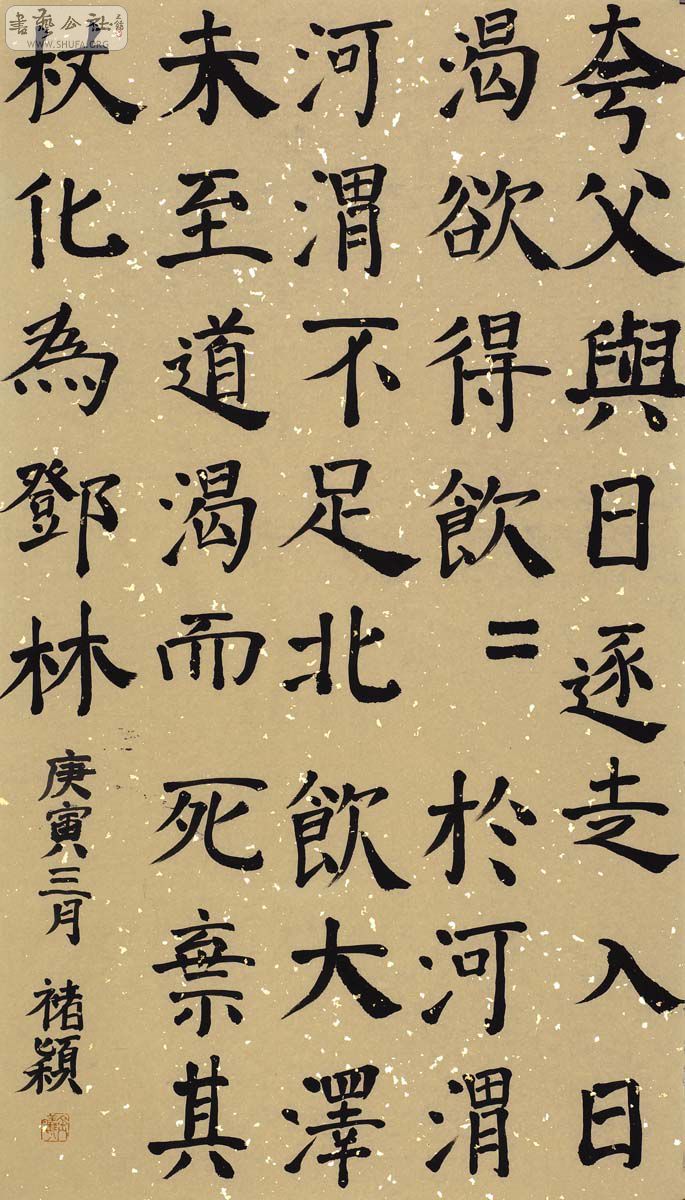 夸父與日逐走入日
渴欲得飲〓於河渭
河渭不足北飲大澤
未至道渴而死棄其
杖化為鄧林
庚寅三月 褚穎
書藝公社
WWW.SHUFA.ORG